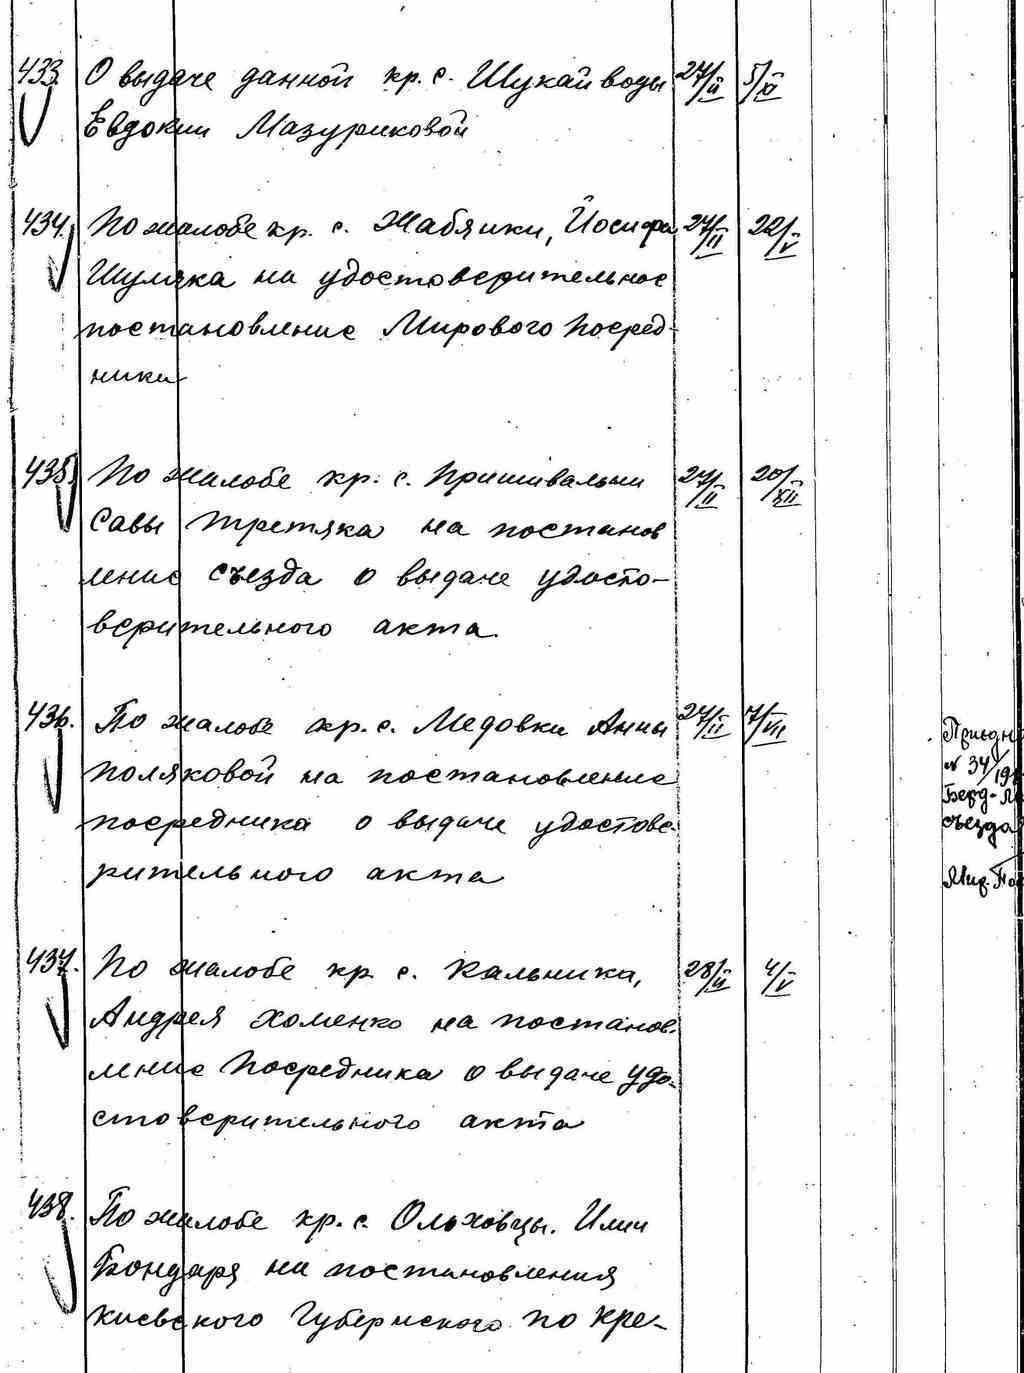 433. О выдаче данной кр. с. Шукайводы 27/II 5/XI
Евдокии Мазуриковой
434. По жалобе кр. с. Жабянки, Йосифа 27/II 22/V
Шуляка на удостоверительное
постановление Мирового Посред-
ника
435. По жалобе кр. с. Пришивальни 27/II 20/XII
Савы Третяка на постанов
ление съезда о выдаче удосто-
верительного акта.
436. По жалобе кр. с. Медовки Анны 27/II 7/VII
Поляковой на постановление
посредника о выдаче удостове-
рительного акта
Приедн
№ 34/19
Берд-
съезда
Мир. Пос
437. По жалобе кр. с. Кальника, 28/II 4/V
Андрея Хоменко на постанов-
ление Посредника о выдаче удо-
стоверительного акта
438. По жалобе кр. с. Ольховцы. Ильи
Бондаря на постановления
Киевского Губернского по кре-